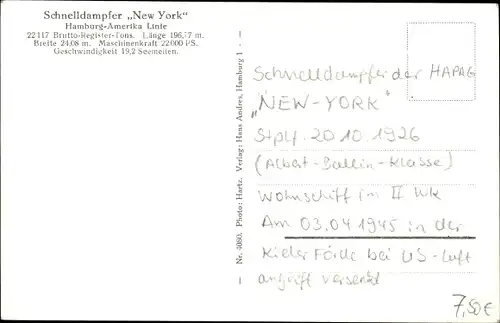 Schnelldampfer „New York“
Hamburg-Amerika Linie
22117 Brutto-Register-Tons. Länge 196,77 m.
Breite 24,08 m. Maschinenkraft 22000 PS.
Geschwindigkeit 19,2 Seemeilen.
— Nr. 4080. Photo: Hartz. Verlag: Hans Andres, Hamburg 1 —
Schnelldampfer der HAPAG
„NEW-YORK“
Stplf 20.10.1926
(Albert-Ballin-Klasse)
Wohnschiff im II Wk
Am 03.04 1945 in der
Kieler Förde bei US-Luft
angriff versenkt
7,50€